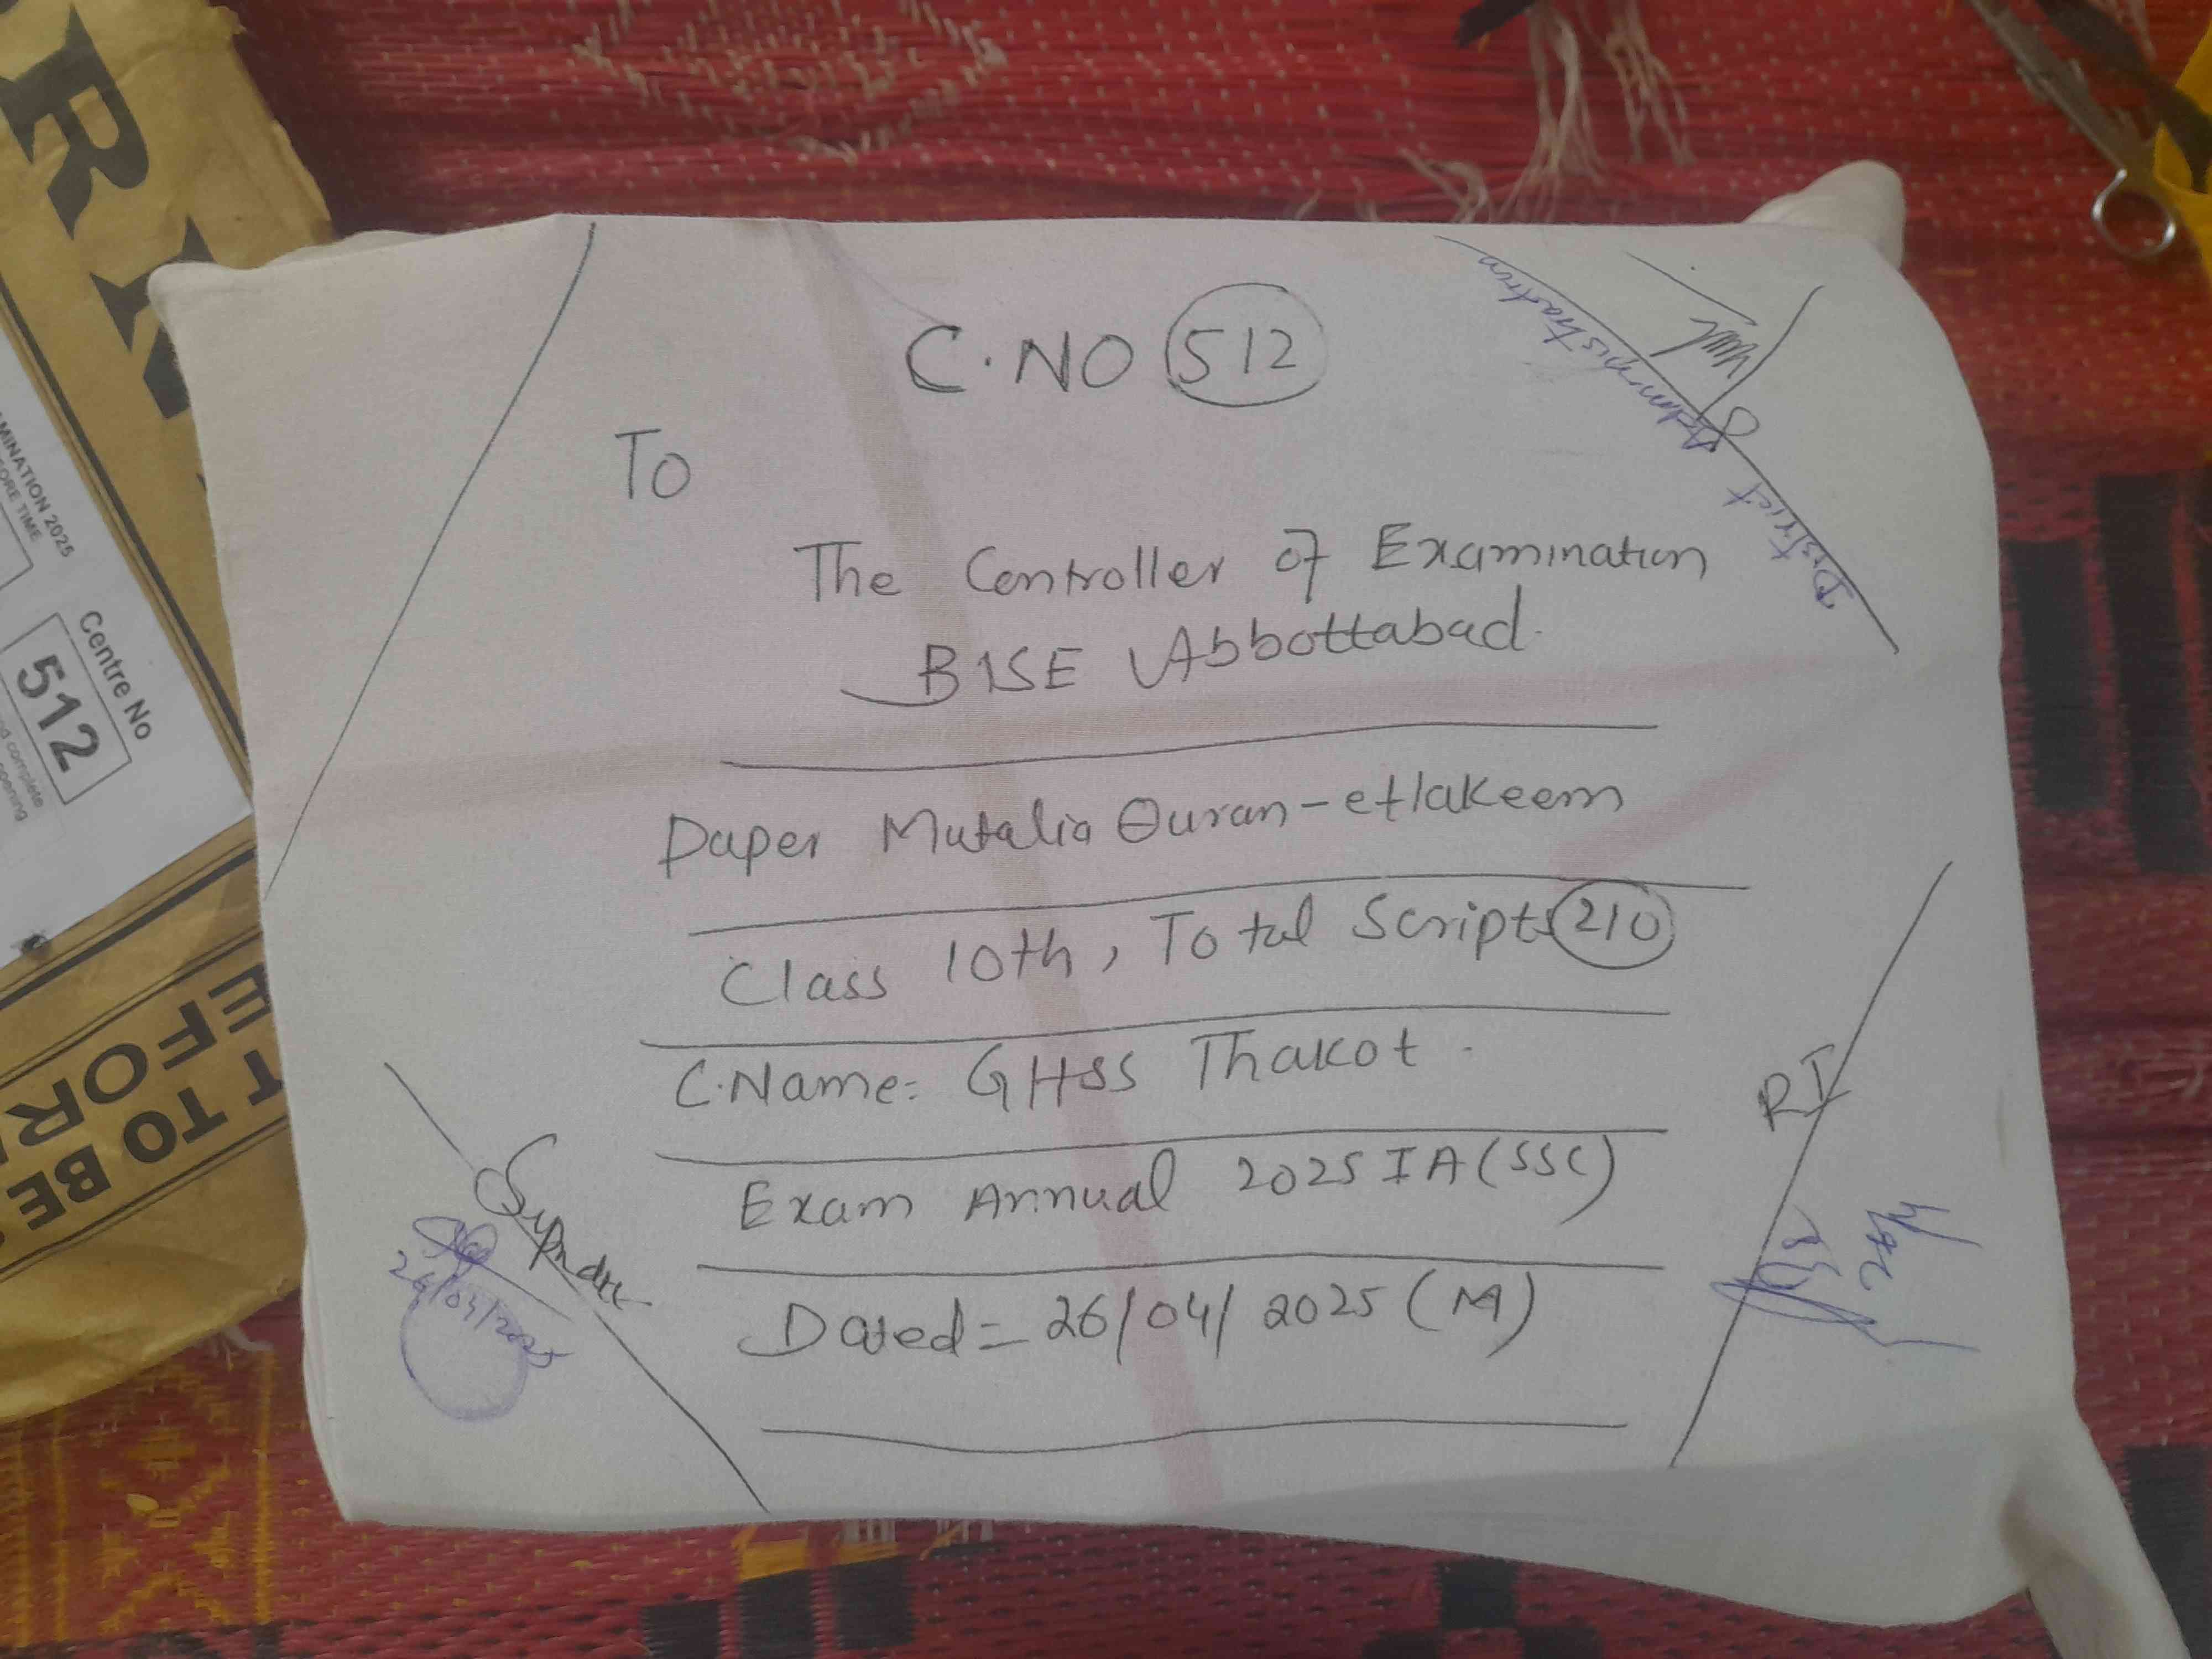 C.NO 512
To
The Controller of Examination
BISE Abbottabad.
Paper Mutalia Quran-etlakeem
Class 10th, Total Scripts 210
C.Name= GHSS Thakot.
Exam Annual 2025 IA (SSC)
Dated= 26/04/2025 (M)
District Administration
RI
26/4
26/04/2025
R
MINATION 2025
ORE TIME
Centre No
512
nd complete
opening
T TO BE
EFOR